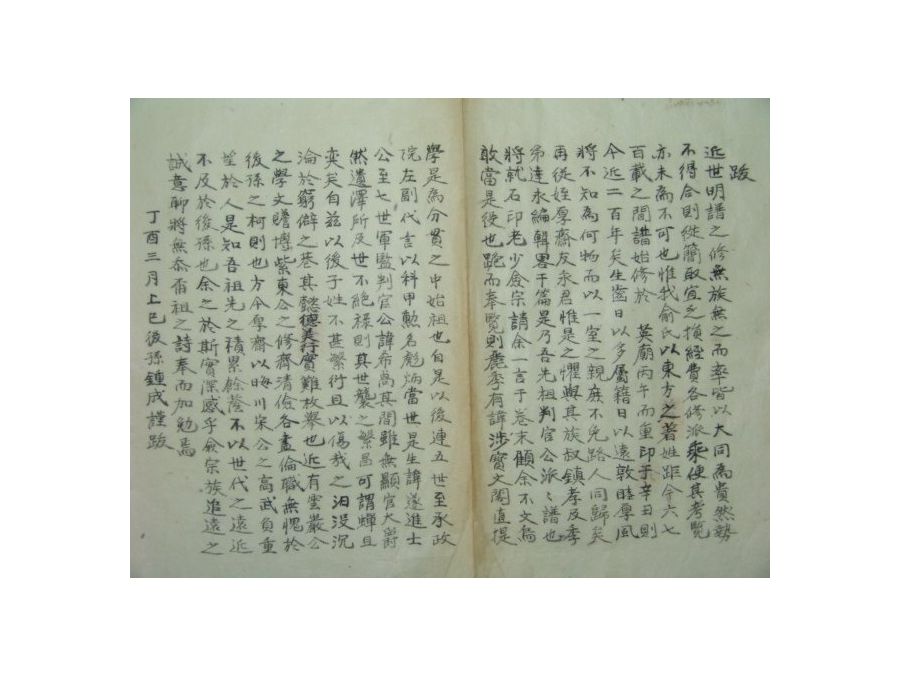 跋
近世明譜之修無族無之而率皆以大同為貴然勢
不得合則從簡取宜之損經費各修派乘便其考覧
亦未為不可也惟我俞氏以東方之著姓距今六七
百載之間譜始修於 英廟丙午而重印于辛丑則
今近二百年矣生齒日以多屬籍日以遠敦睦厚風
將不知為何物而以一室之親庶不免路人同歸矣
再從姪厚齋友永君惟是之懼與其族叔鎮孝及季
弟達永編輯畧干篇是乃吾先祖判官公派〻譜也
將就石印老少僉宗請余一言于卷末顧余不文烏
敢當是役也跪而奉覧則麗季有諱涉寶文閣直提
學是為分貫之中始祖也自是以後連五世至承政
院左副代言以科甲勲名彪炳當世是生諱遂進士
公至七世軍監判官公諱希萬其間雖無顯官大爵
然遺澤所及世不絶祿則其世襲之繁昌可謂蟬且
奕矣自玆以後子姓不甚繁衍且以傷哉之汨没沉
淪於窮僻之巷其懿德美行實難枚舉也近有雲巖公
之學文贍博紫東公之修齊清儉各盡倫職無愧於
後孫之柯則也方今厚齋以晦川宋公之高武負重
望於人是知吾祖先之積累餘蔭不以世代之遠近
不及於後孫也余之於斯實深感乎僉宗族追遠之
誠意聊將無忝甭祖之詩奉而加勉焉
丁酉三月上巳後孫鍾成謹跋